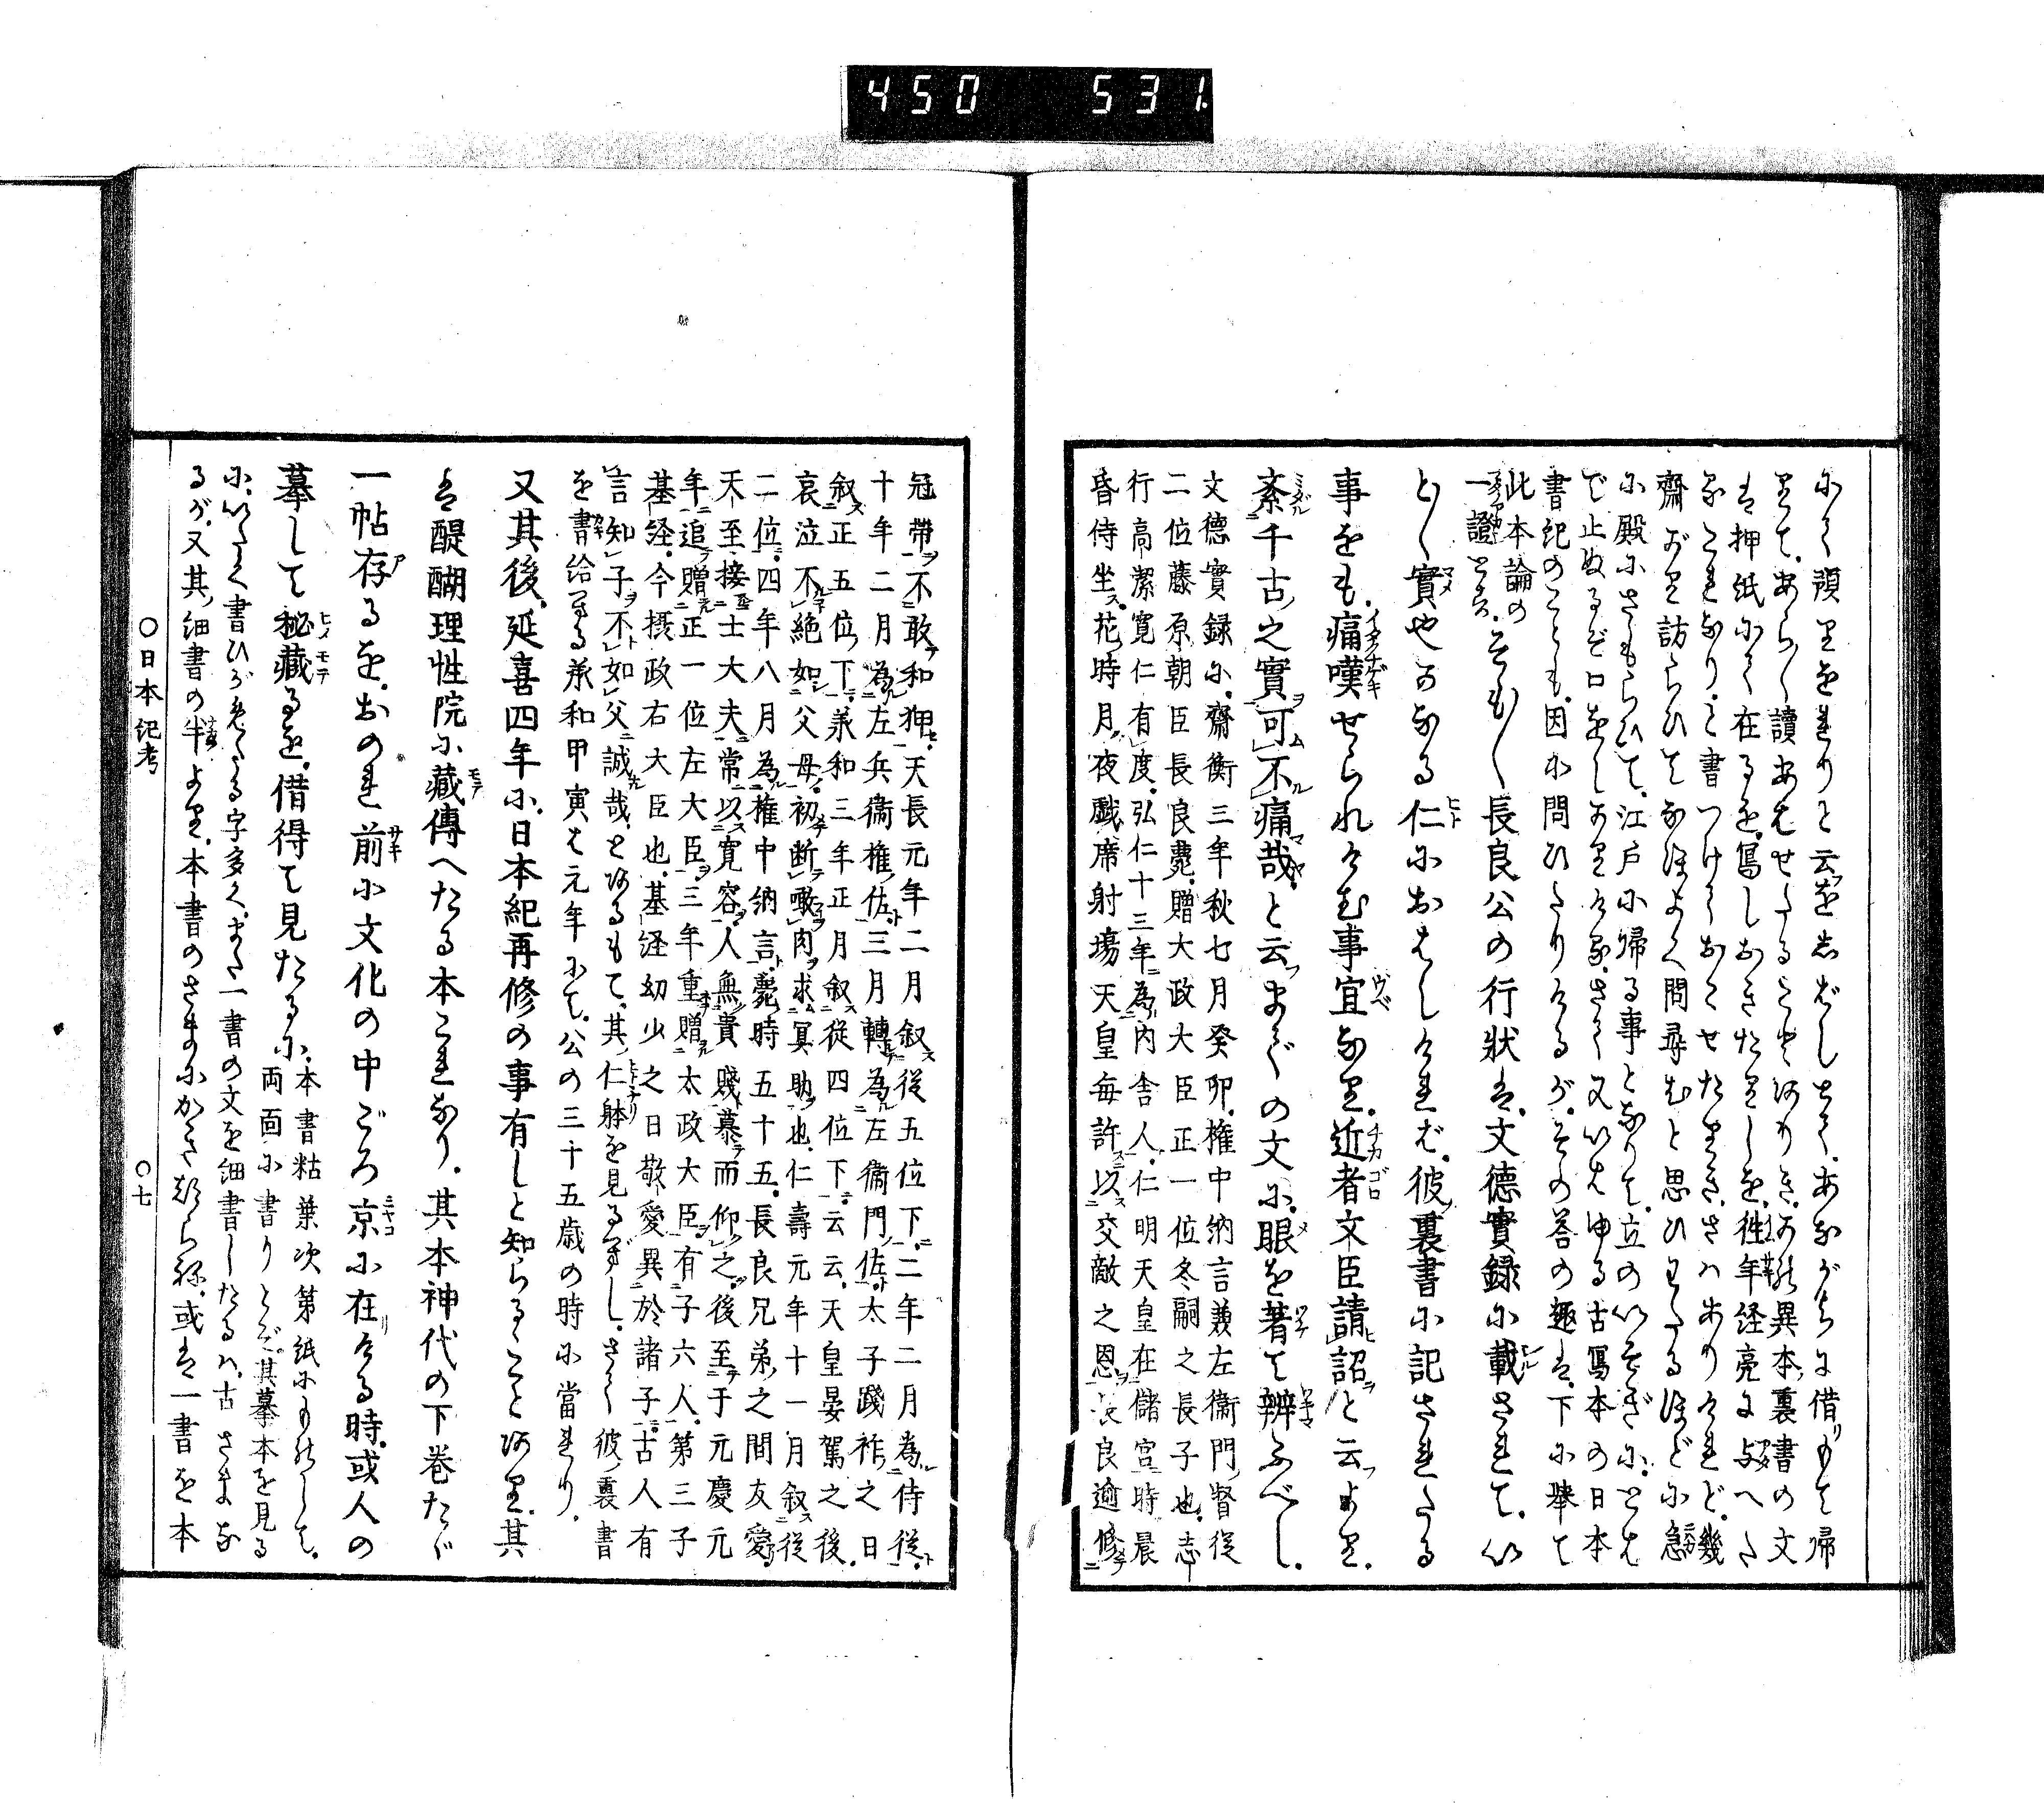 450 531.
にて預りをれりと云をしばしとて、あながちに借りもて歸
りて、あら〳〵讀あはせたることありき、かれ異本、裏書の文
は押紙にて在るを、寫しおきたりしを、往年経亮に与へた
るこれなり、と書つけておこせたりき、さハありけれど、幾
齋がり訪らひてなほよく問尋むと思ひをるほどに急
に殿にさもらひて、江戸に帰る事となりて、立のいそぎに、とは
で止ぬるぞ口をしかりける、さて又いは申る古寫本の日本
書紀のことも、因に問ひたりけるが、その答の趣は、下に擧て
此本論の
一證とす、そも〳〵長良公の行状は、文德實録に載されて、い
とゝ實也かなる仁におはしければ、彼裏書に記されたる
事をも、痛嘆せられけむ事宜なり、近者文臣請詔と云より、
紊千古之實可不痛哉、と云までの文に、眼を著て辨ふべし、
文德實録に、齋衡三年秋七月癸卯、權中納言兼左衛門督從
二位藤原朝臣長良薨、贈大政大臣正一位冬嗣之長子也、志
行高潔寛仁有度、弘仁十三年為内舎人、仁明天皇在儲宮時晨
昏侍坐、花時月夜戯席射塲天皇毎許以交敵之恩、長良逾修
冠帶不敢和狎、天長元年二月叙從五位下、二年二月為侍從、
十年二月為左兵衞權佐三月轉為左衞門佐、太子踐祚之日
叙正五位下、兼和三年正月叙從四位下、云云、天皇晏駕之後、
哀泣不絶如父母、初断噉肉求冥助也、仁壽元年十一月叙從
二位、四年八月為權中納言、薨時五十五、長良兄弟之間友愛
天至接士大夫常以寛容、人無貴賤慕而仰之、後至于元慶元
年追贈正一位左大臣、三年重贈太政大臣、有子六人、第三子
基経、今摂政右大臣也、基経幼少之日敬愛異於諸子、古人有
言知子不如父、誠哉、とあるもて、其仁躰を見るべし、さて彼裏書
を書給へる兼和甲寅は元年にて、公の三十五歳の時に當れり、
又其後、延喜四年に、日本紀再修の事有しと知らるゝことあり、其
は醍醐理性院に藏傳へたる本これなり、其本神代の下巻たゞ
一帖存るを、おのれ前に文化の中ごろ京に在ける時、或人の
摹して秘藏るを、借得て見たるに、本書粘葉次第紙にものして、
両面に書りとぞ、其摹本を見る
に、いたく書ひがめたる字多く、また一書の文を細書したるハ、古さまな
るが、又其細書の半より、本書のさまにかき頽らね、或は一書を本
〇日本紀考 〇七